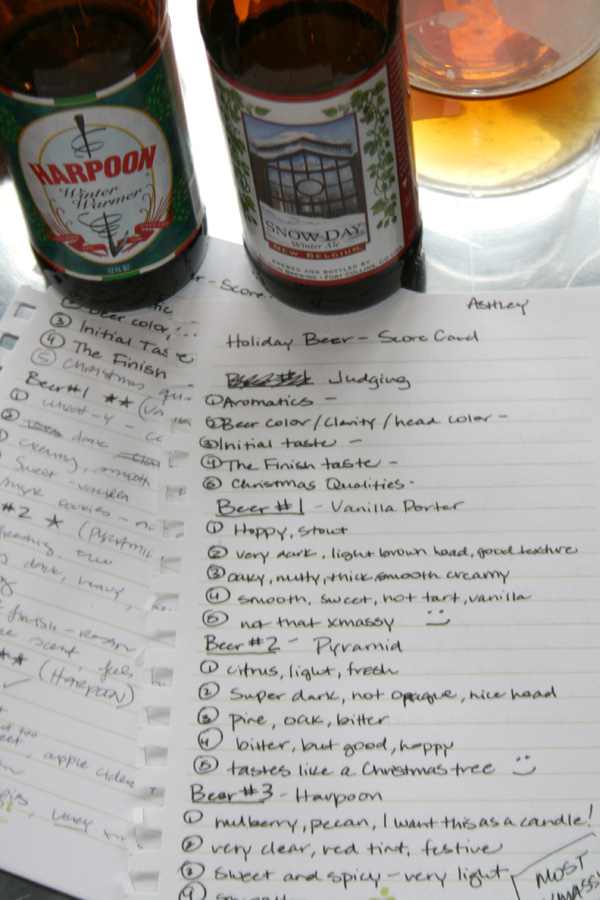 HARPOON
Winter
Warmer
12 FL OZ
SNOW DAY
Winter Ale
NEW BELGIUM
BREWED AND BOTTLED BY
Ashley
Holiday Beer - Score Card
Judging
① Aromatics -
② Beer color / clarity / head color -
③ Initial taste -
④ The Finish taste -
⑤ Christmas Qualities -
Beer #1 - Vanilla Porter
① Hoppy, stout
② very dark, light brown head, good texture
③ oaky, nutty, thick, smooth creamy
④ smooth, sweet, not tart, vanilla
⑤ not that xmassy :)
Beer #2 - Pyramid
① citrus, light, fresh
② Super dark, not opaque, nice head
③ pine, oak, bitter
④ bitter, but good, hoppy
⑤ tastes like a Christmas tree :)
Beer #3 - Harpoon
① mulberry, pecan, I want this as a candle!
② very clear, red tint, festive
③ sweet and spicy - very light
④
MOST
XMASSY
- Score
Beer color,
③ Initial Taste
④ The Finish
⑤ Christmas
Beer #1 ★★
① - y -
② dark
creamy, smooth
Sweet - vanilla
cookies -
#2 ★ (PYRAMI
dark, heavy,
finish -
scent, feels
★★ (HARPOON)
apple cider
very